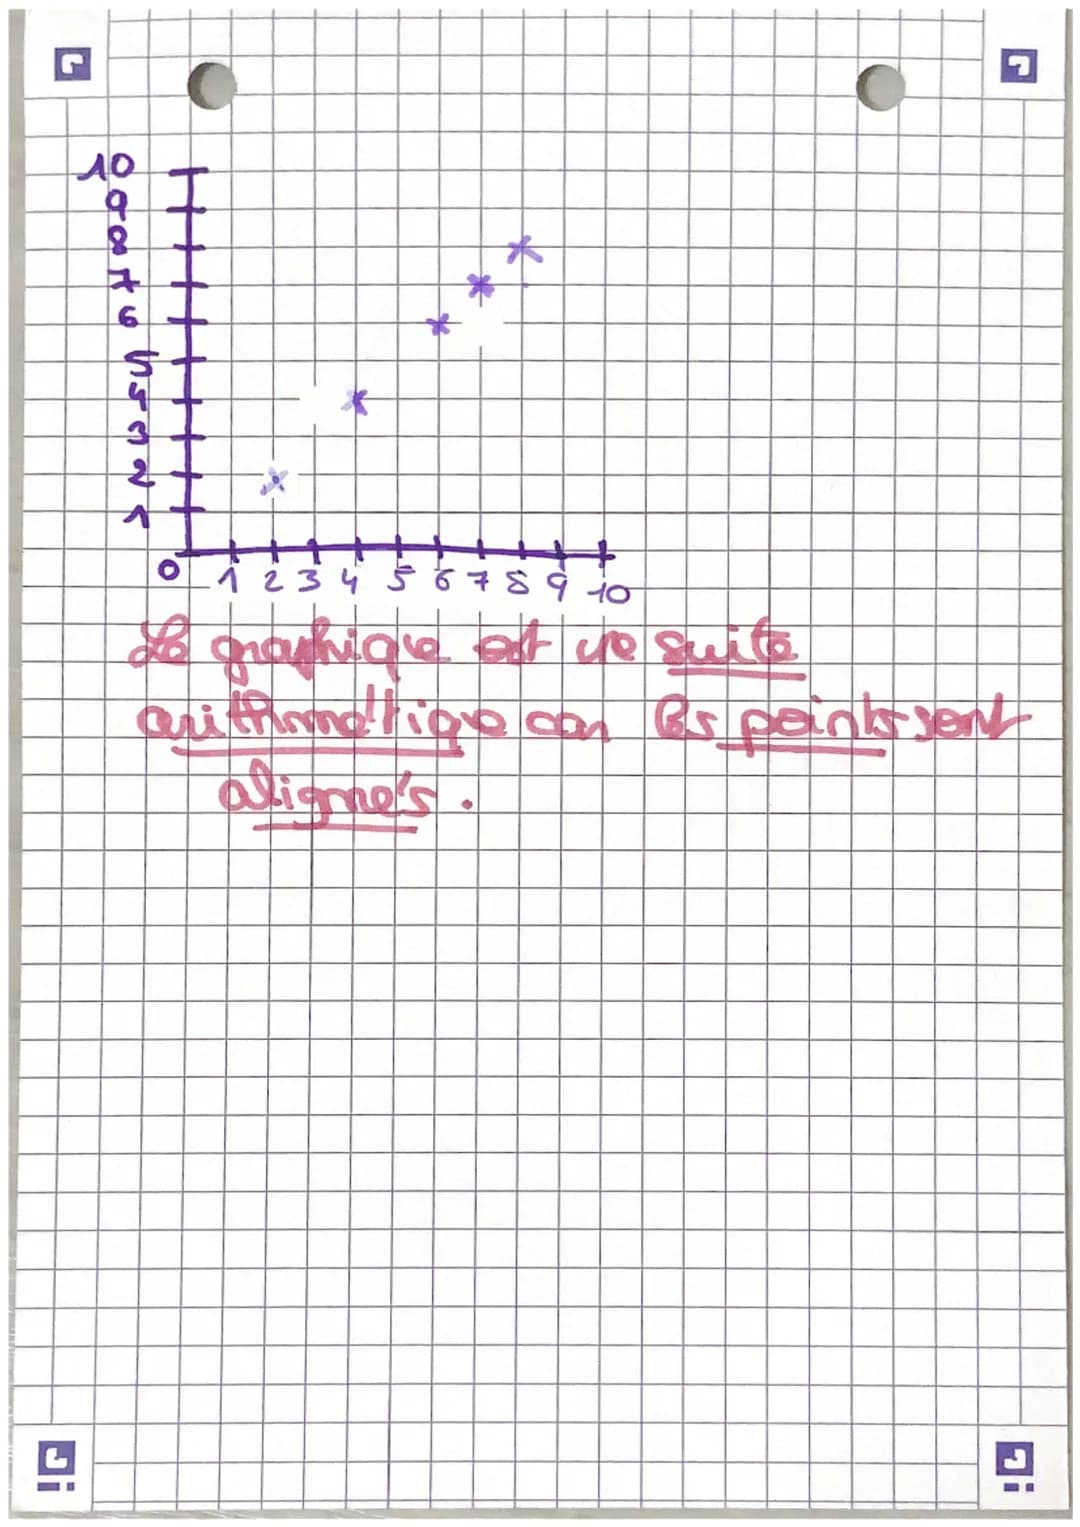 10
9
8
7
6
5
4
3
2
1
0 1 2 3 4 5 6 7 8 9 10
Le graphique est une suite
arithmétique car les points sont
alignés.